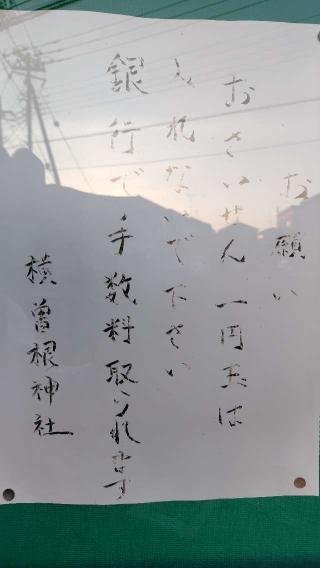 お願い
おさいせん一円玉は
入れないで下さい
銀行で手数料取られます
横曽根神社